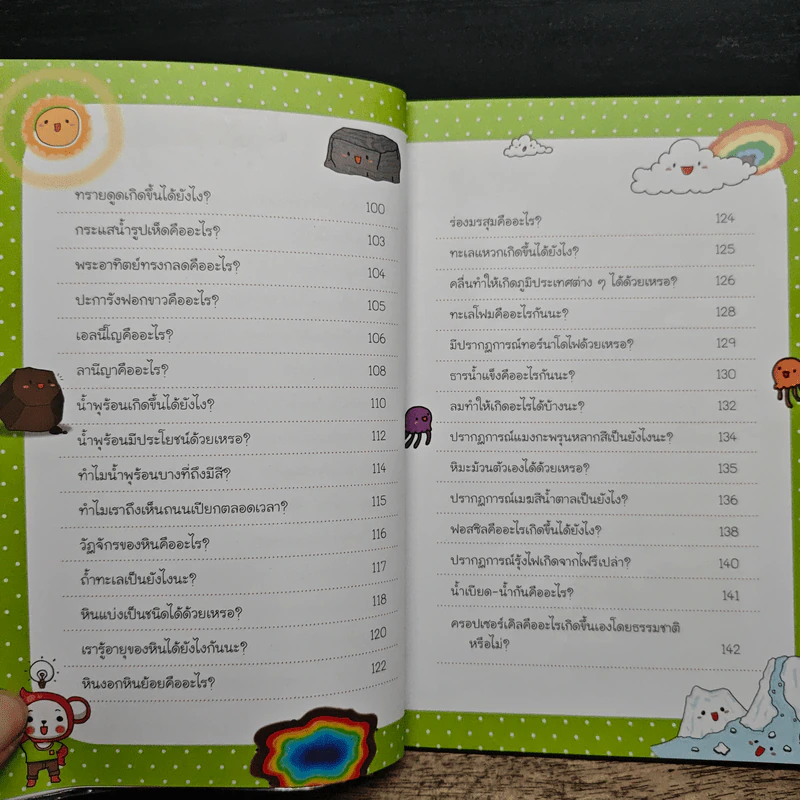 ทรายดูดเกิดขึ้นได้ยังไง? 100
กระแสน้ำรูปเห็ดคืออะไร? 103
พระอาทิตย์ทรงกลดคืออะไร? 104
ปะการังฟอกขาวคืออะไร? 105
เอลนีโญคืออะไร? 106
ลานีญาคืออะไร? 108
น้ำพุร้อนเกิดขึ้นได้ยังไง? 110
น้ำพุร้อนมีประโยชน์ด้วยเหรอ? 112
ทำไมน้ำพุร้อนบางที่ถึงมีสี? 114
ทำไมเราถึงเห็นถนนเปียกตลอดเวลา? 115
วัฏจักรของหินคืออะไร? 116
ถ้ำทะเลเป็นยังไงนะ? 117
หินแบ่งเป็นชนิดได้ด้วยเหรอ? 118
เรารู้อายุของหินได้ยังไงกันนะ? 120
หินงอกหินย้อยคืออะไร? 122
ร่องมรสุมคืออะไร? 124
ทะเลแหวกเกิดขึ้นได้ยังไง? 125
คลื่นทำให้เกิดภูมิประเทศต่าง ๆ ได้ด้วยเหรอ? 126
ทะเลโฟมคืออะไรกันนะ? 128
มีปรากฏการณ์ทอร์นาโดไฟด้วยเหรอ? 129
ธารน้ำแข็งคืออะไรกันนะ? 130
ลมทำให้เกิดอะไรได้บ้างนะ? 132
ปรากฏการณ์แมงกะพรุนหลากสีเป็นยังไงนะ? 134
หิมะม้วนตัวเองได้ด้วยเหรอ? 135
ปรากฏการณ์เมฆสีน้ำตาลเป็นยังไง? 136
ฟอสซิลคืออะไรเกิดขึ้นได้ยังไง? 138
ปรากฏการณ์รุ้งไฟเกิดจากไฟรึเปล่า? 140
น้ำเบียด-น้ำกันคืออะไร? 141
ครอปเซอร์เคิลคืออะไรเกิดขึ้นเองโดยธรรมชาติ
หรือไม่? 142